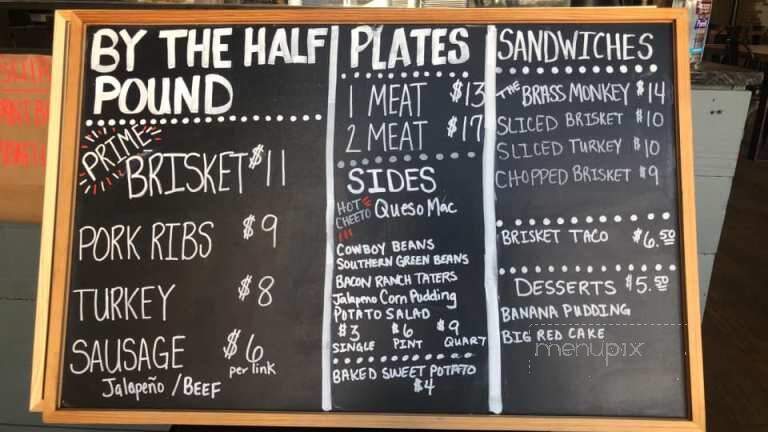 BY THE HALF
POUND
PRIME
BRISKET $11
PORK RIBS $9
TURKEY $8
SAUSAGE $6
per link
Jalapeño / BEEF
PLATES
1 MEAT $13
2 MEAT $17
SIDES
HOT CHEETO Queso Mac
COWBOY BEANS
SOUTHERN GREEN BEANS
BACON RANCH TATERS
Jalapeno Corn Pudding
POTATO SALAD
$3 $6 $9
SINGLE PINT QUART
BAKED SWEET POTATO
$4
SANDWICHES
THE BRASS MONKEY $14
SLICED BRISKET $10
SLICED TURKEY $10
CHOPPED BRISKET $9
BRISKET TACO $6.50
DESSERTS $5.50
BANANA PUDDING
BIG RED CAKE
menupix